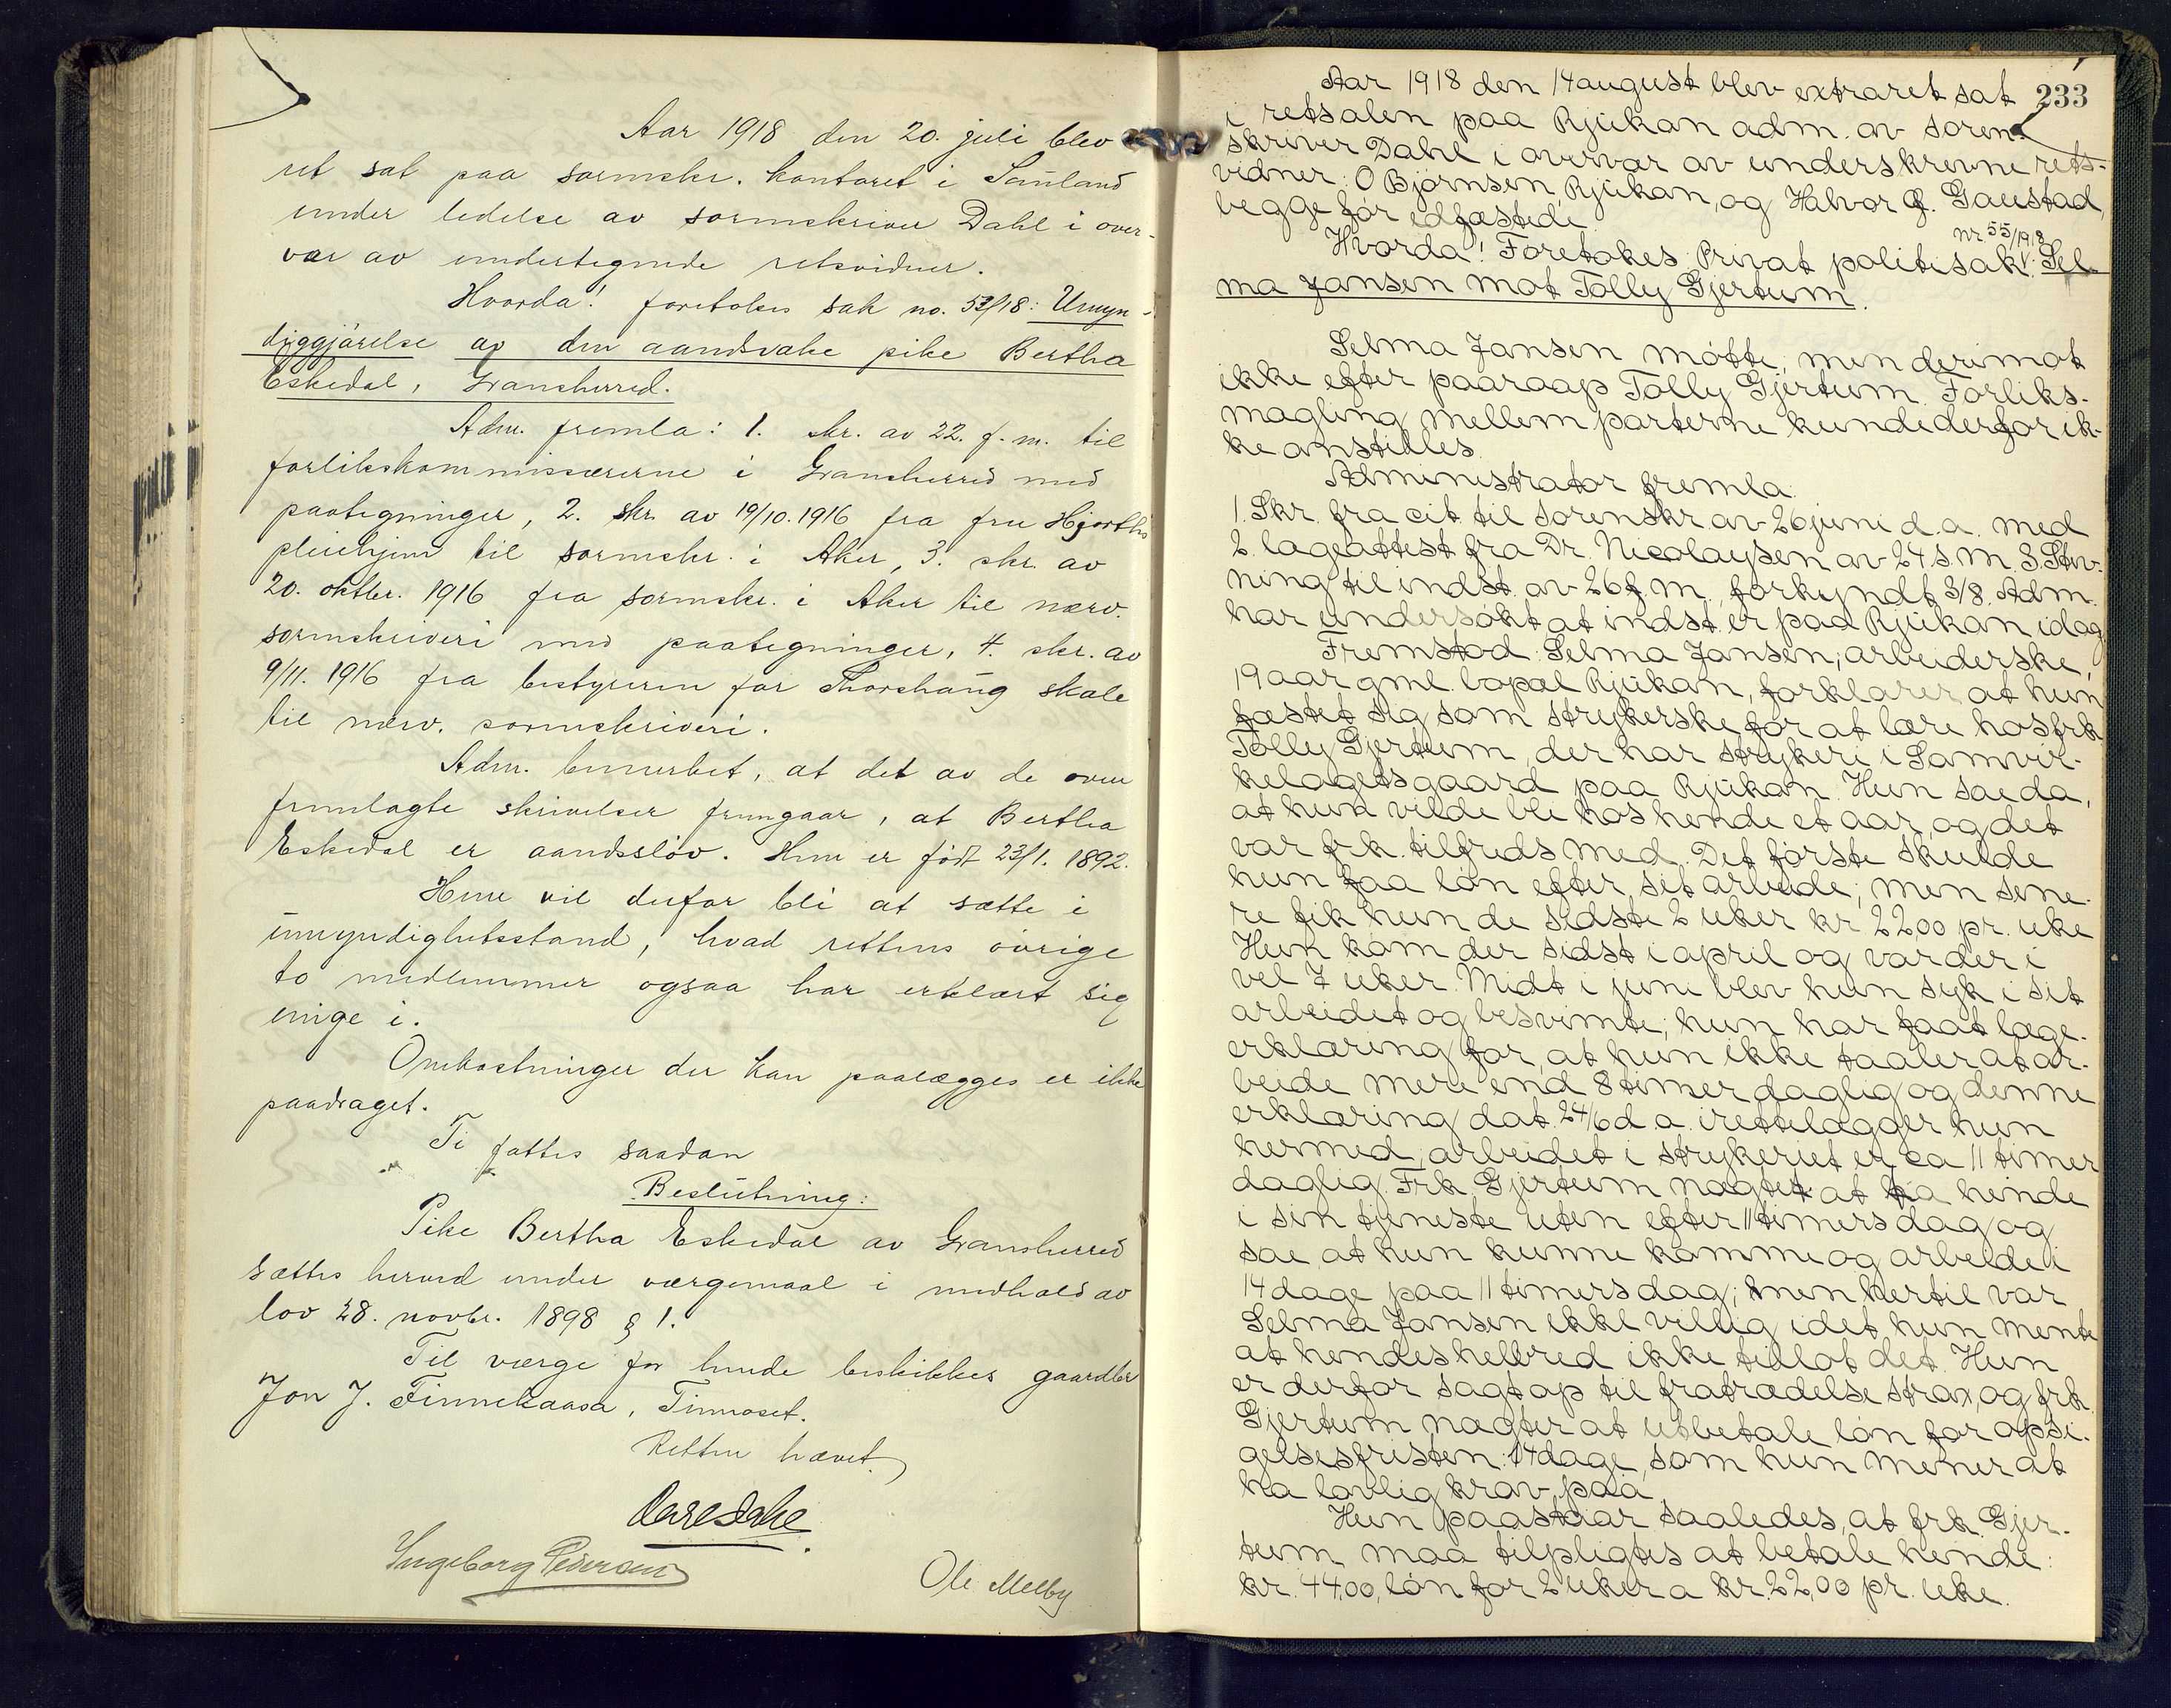 Aar 1918 den 20. juli blev
ret sat paa sornskr. kontoret i Sauland
under ledelse av sorenskriver Dahl i over-
vær av undertegnede retsvidner.
Hvorda! foretokes sak no. 53/18: Umyn-
diggjørelse av den aandsvake pike Bertha
Eskedal, Gransherred.
Adm. fremla: 1. skr. av 22. f. m. til
forlikskommissærerne i Gransherred med
paategninger, 2. skr. av 19/10. 1916 fra fru Hjorths
pleiehjem til sorenskr. i Aker, 3. skr. av
20. oktbr. 1916 fra sorenskr. i Aker til nærv.
sorenskriveri med paategninger, 4. skr. av
9/11. 1916 fra bestyreren for Thorshaug skole
til nærv. sorenskriveri.
Adm. bemerket, at det av de oven
fremlagte skrivelser fremgaar, at Bertha
Eskedal er aandssløv. Hun er født 23/1. 1892.
Hun vil derfor bli at sætte i
umyndighetsstand, hvad rettens øvrige
to medlemmer ogsaa har erklært sig
enige i.
Omkostninger der kan paalægges er ikke
paadraget.
Ti fattes saadan
Beslutning:
Pike Bertha Eskedal av Gransherred
sættes herved under værgemaal i medhold av
lov 28. novbr. 1898 § 1.
Til værge for hende beskikkes gaardbr
Jon J. Finnekaasa, Tinnoset.
Retten hævet.
Carl Dahl
Ingeborg Pedersen
Ole Melby
233
Aar 1918 den 14 august blev extraret sat
i retsalen paa Rjukan adm. av soren-
skriver Dahl i overvær av underskrevne rets-
vidner: O Bjørnsen, Rjukan, og Halvor G. Gaustad,
begge før edfæstede.
nr. 55/1918
Hvorda! Foretokes Privat politisak: Sel-
ma Jansen mot Tolly Gjertum.
Selma Jansen møtte, men derimot
ikke efter paaraap Tolly Gjertum. Forliks-
mægling mellem parterne kunde derfor ik-
ke anstilles.
Administrator fremla:
1. Skr. fra cit. til sorenskr. av 26 juni d. a. med
2. lægeattest fra Dr. Nicolaysen av 24 s. m. 3. Stev-
ning til indst. av 26 f. m., forkyndt 3/8. Adm.
har undersøkt at indst. er paa Rjukan idag.
Fremstod: Selma Jansen, arbeiderske,
19 aar gml. bopæl Rjukan, forklarer at hun
fæstet sig som strykerske for at lære hos frk.
Tolly Gjertum, der har strykeri i Samvir-
kelagetsgaard paa Rjukan. Hun sa da,
at hun vilde bli hos hende et aar, og det
var frk. tilfreds med. Det første skulde
hun faa løn efter sit arbeide; men sene-
re fik hun de sidste 2 uker kr 22,00 pr. uke
Hun kom der sidst i april og var der i
vel 7 uker. Midt i juni blev hun syk i sit
arbeidet og besvimte; hun har faat læge-
erklæring for, at hun ikke taaler at ar-
beide mere end 8 timer daglig og denne
erklæring dat. 24/6 d. a. irettelægger hun
hermed; arbeidet i strykeriet er ca 11 timer
daglig. Frk. Gjertum nægtet at ha hende
i sin tjeneste uten efter 11 timers dag og
sae, at hun kunne komme og arbeide i
14 dage paa 11 timers dag; men hertil var
Selma Jansen ikke villig idet hun mente
at hendes helbred ikke tillot det. Hun
er derfor sagt op til fratrædelse strax, og frk.
Gjertum nægter at utbetale løn for opsi-
gelsesfristen: 14 dage, som hun mener at
ha lovlig krav paa.
Hun paastaar saaledes, at frk. Gjer-
tum maa tilpligtes at betale hende:
kr. 44,00, løn for 2 uker a kr. 22,00 pr. uke.